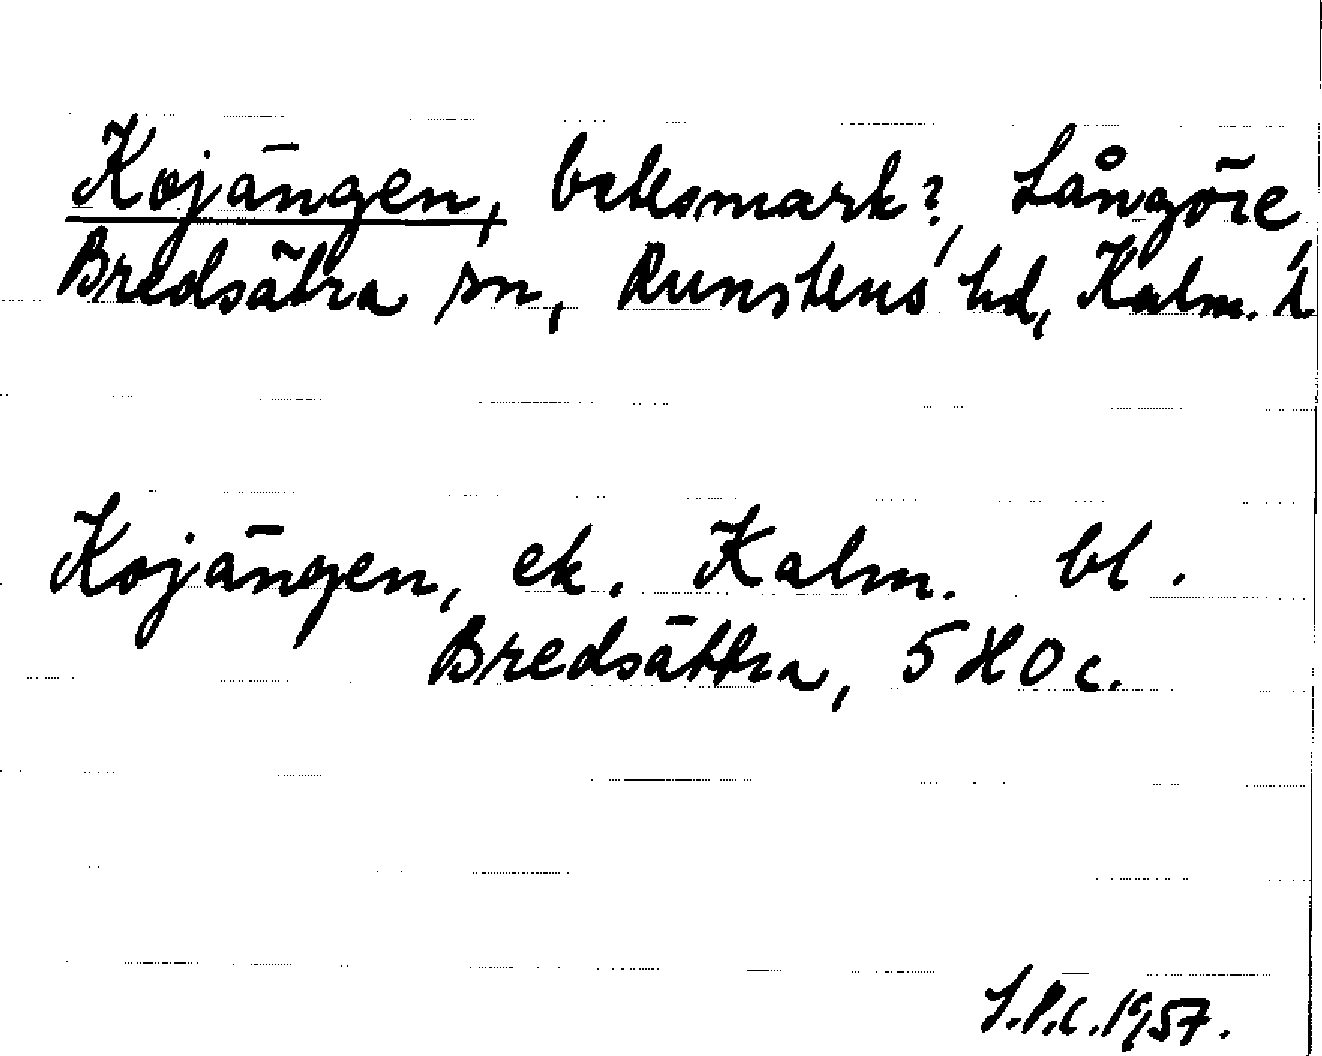 Kojängen, betesmark?, Långöre,
Bredsätra sn, Runstens hd, Kalm. l
Kojängen, ek. Kalm. bl.
Bredsättra, 5 H 0 c.
S.P.C. 1957.